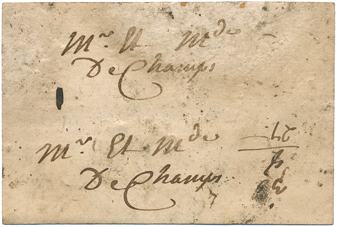 Mr Et Mde
DeChamps
Mr Et Mde
DeChamps